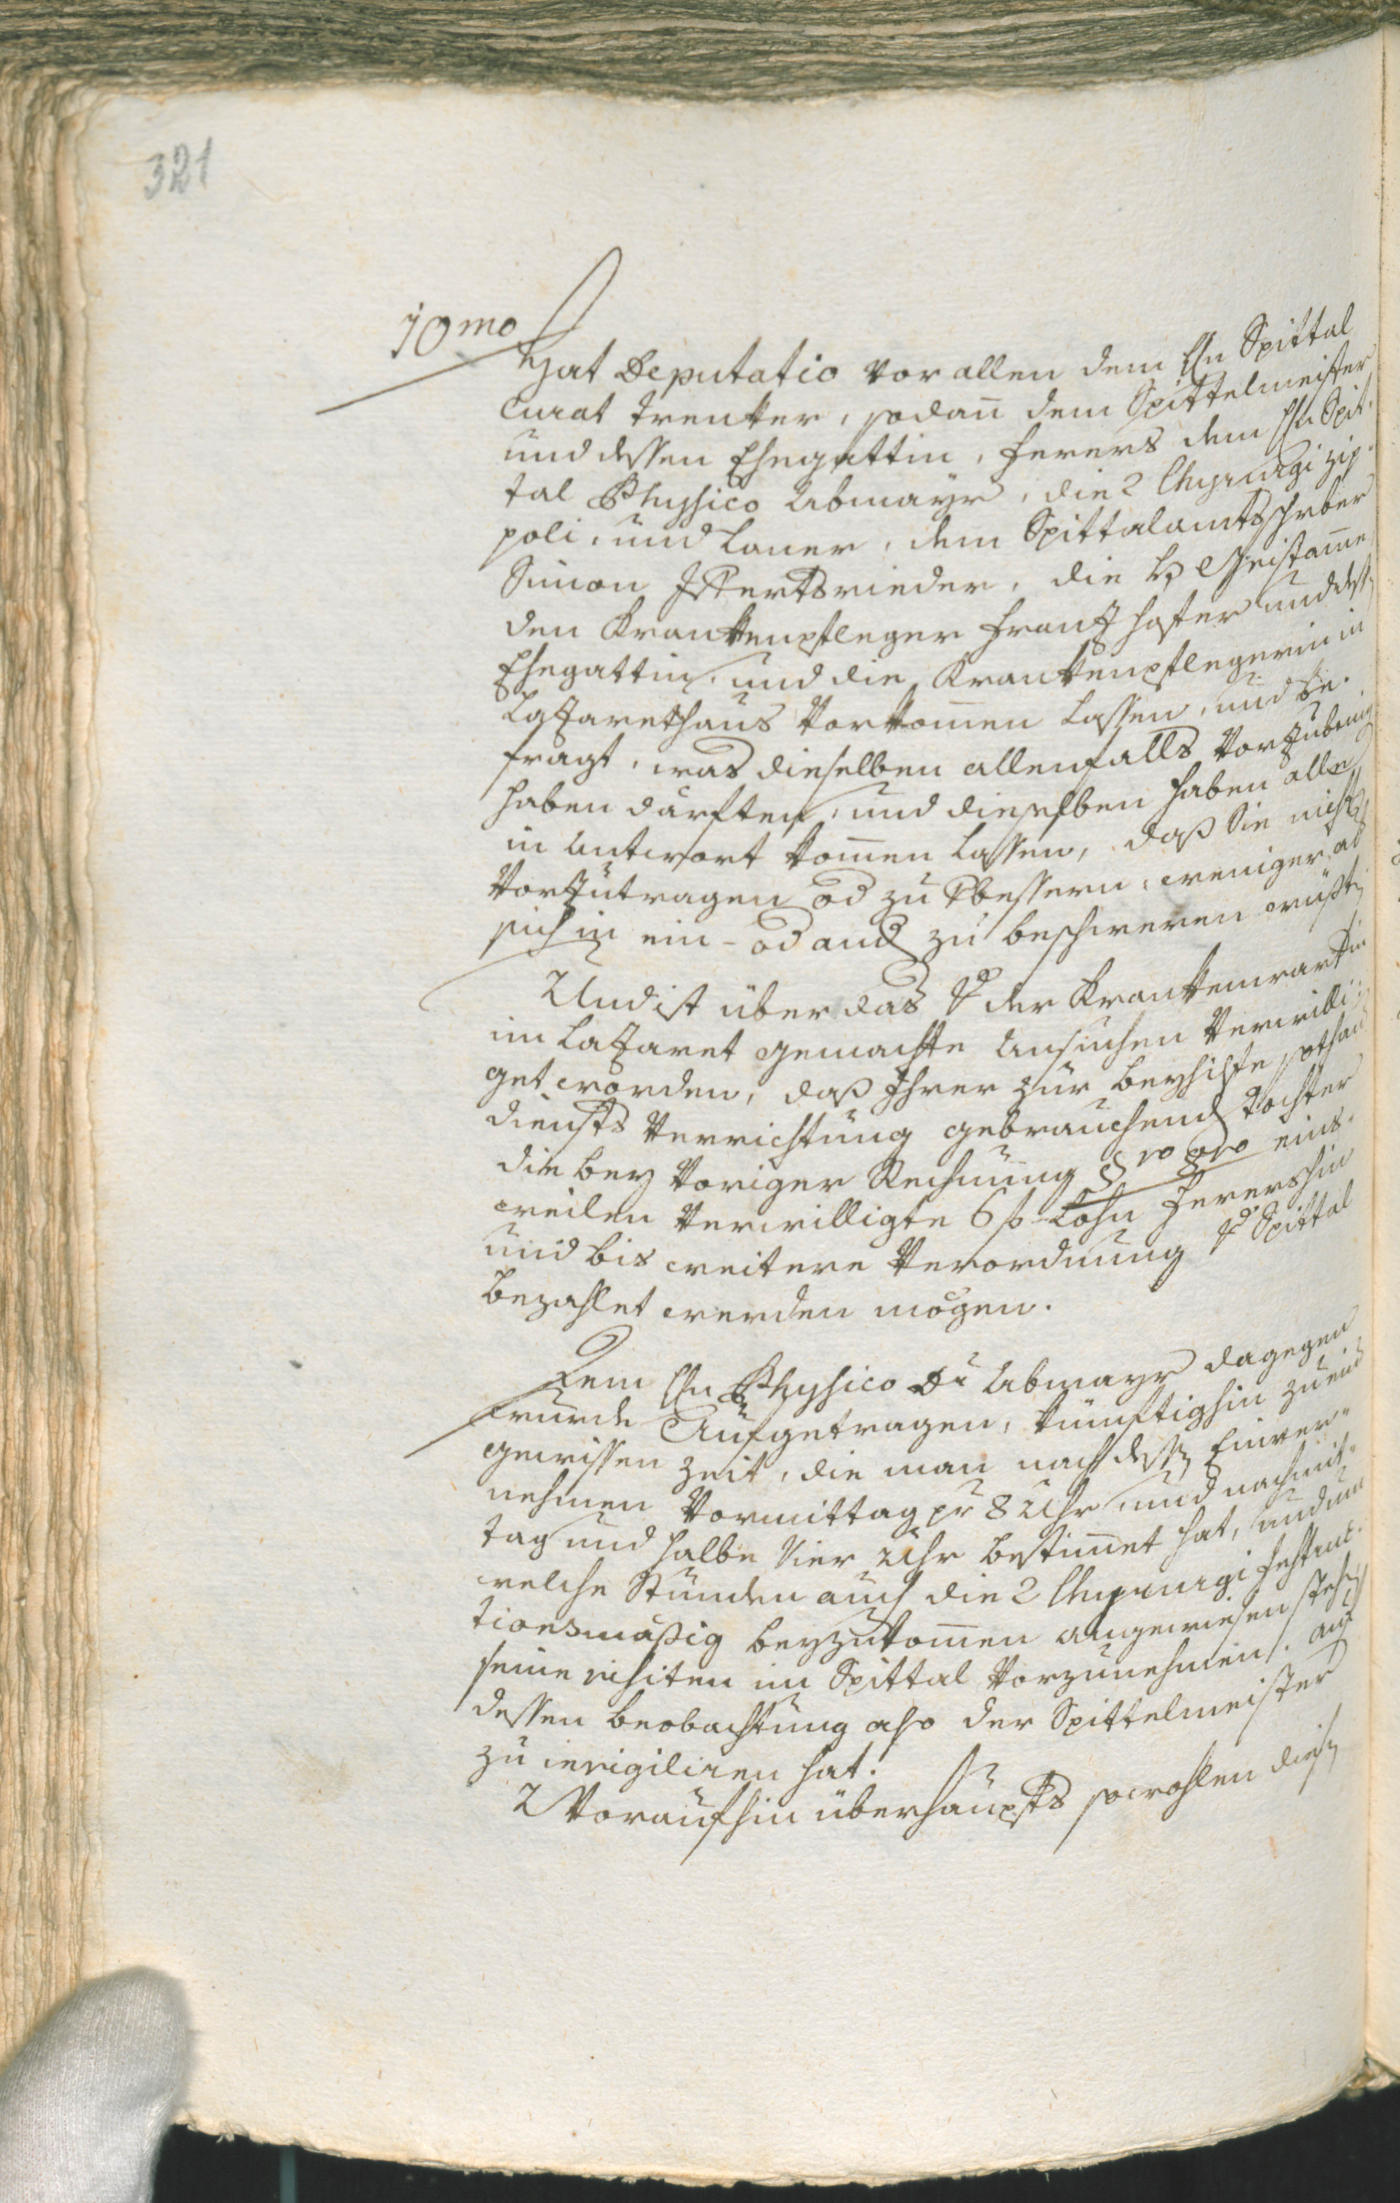 321
10mo
Hat Deputatio vor allen dem Hn Spittal
Curat Trenker, sodan dem Spittelmeister
und dessen Ehegattin, ferers dem Hn Spit-
tal Physico Ubmayr, die 2 Chyrurgi Zip-
poli, und Laner, dem Spittalamtsschrber
Simon
den Krankenpfleger Frantz Hofer und dess
Ehegattin, und die Krankenpflegerin in
Lazarethaus vorkomen lassen, und be-
fragt, was dieselben allenfalls vorzubring
haben därften, und dieselben haben alle
in Antwort komen lassen, daß Sie nichts
vorzutragen od zu verbessern, weniger ab
sich in ein- od and zu beschweren wußten
Und ist über das der Krankenwartin
im Lazaret gemachte Ansuchen verwilli-
get worden, daß Ihrer zur Beyhilfe sothan
diensts Verrichtung gebrauchend Tochter
die bey voriger Rechnung § 10 eins-
weilen verwilligte 6 f Lohn ferershin
und bis weitere Verordnung Spittal
bezahlet werden mögen.
Dem Hn Physico Dr Ubmayr dagegen
wurde aufgetragen, künftighin zu ein
gewissen Zeit, die man nach dessen Einver-
nehmen Vormittag pr 8 Uhr, und nachmit-
tag und halbe vier Uhr bestimet hat, und um
welche Stunden auch die 2 Chyrurgi Instruc-
tionsmäßig beyzukomen angewiesen stehen
seine visiten im Spittal vorzunehmen. auf
dessen beobachtung also der Spittelmeister
zu invigiliren hat.
Woraufhin überhaupts sowohlen diesen